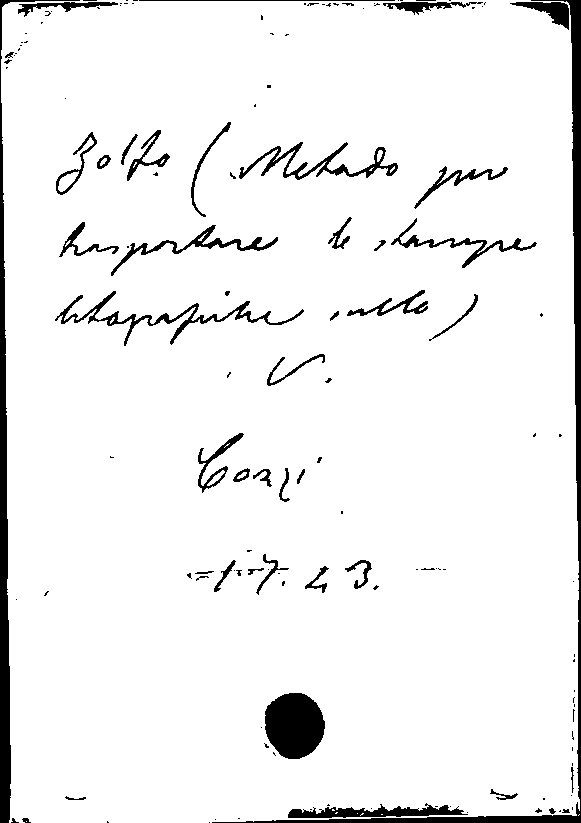 Zolfo (Metodo per
trasportare le stampe
litografiche sullo)
V.
Conzi
17. 23.